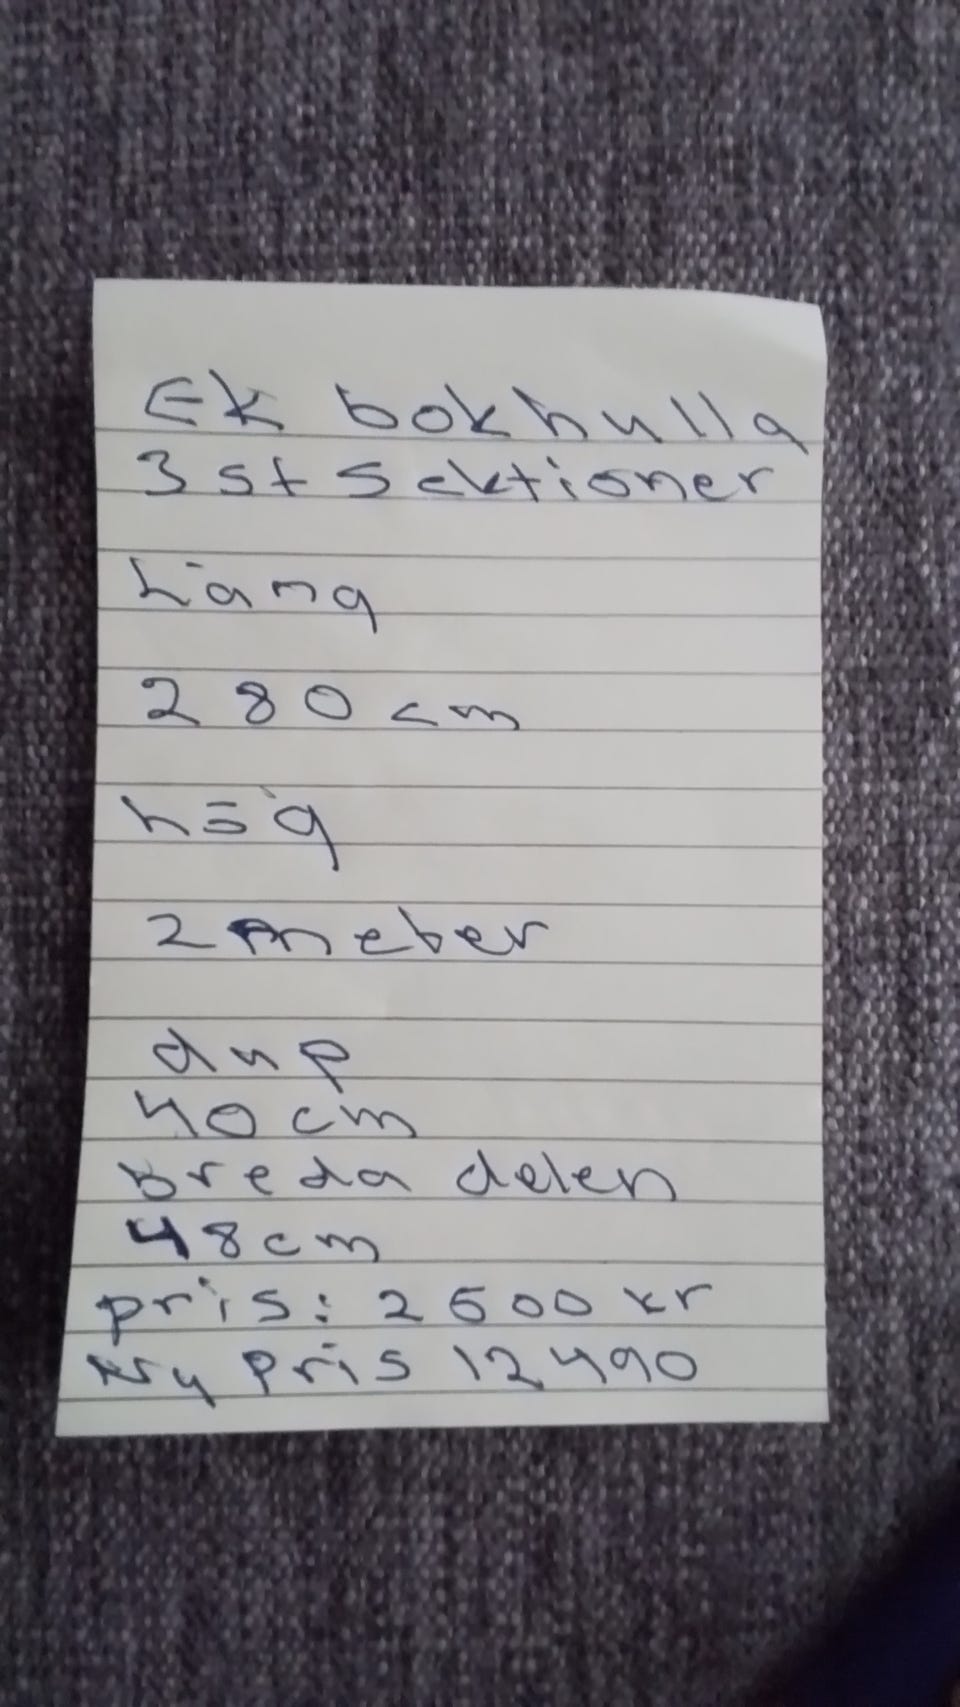 Ek bokhulla
3 st sektioner
Läng
280 cm
hög
2 meter
dup
40 cm
breda delen
48 cm
pris: 2500 kr
Ny pris 12490